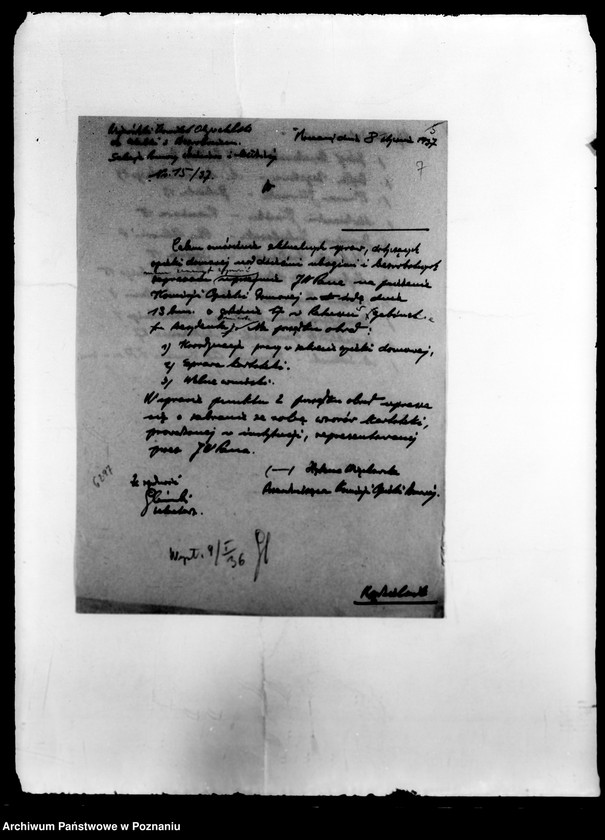 Wojewódzki Komitet Obywatelski
do Walki z Bezrobociem
Sekcja Pomocy Dzieciom i Młodzieży
No. 15/37.
Poznań, dnia 8 stycznia 1937
5
7
Celem omówienia aktualnych spraw, dotyczących
opieki domowej nad dziećmi ubogimi i bezrobotnych
zapraszam JWPana na posiedzenie
Komisji Opieki Domowej w środę dnia
13 bm. o godzinie 17 w Ratuszu (gabinet
p. Prezydenta). Na porządku obrad:
1) Koordynacja pracy w zakresie opieki domowej,
2) Sprawa kartoteki.
3) Wolne wnioski.
W sprawie punktu 2 porządku obrad uprasza
się o zabranie ze sobą wzorów kartoteki,
prowadzonej w instytucji, reprezentowanej
przez JWPana.
6297
Za zgodność
sekretarz.
(—)
Przewodnicząca Komisji Opieki Domowej.
Wysł. 9/I 36
Archiwum Państwowe w Poznaniu